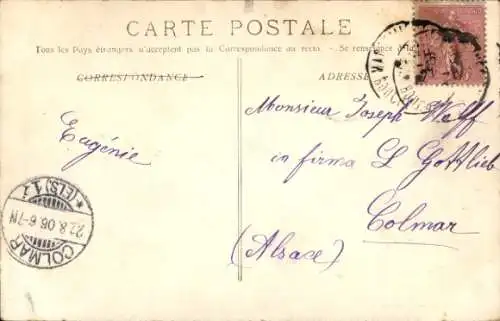 CARTE POSTALE
Tous les Pays étrangers n'acceptent pas la Correspondance au recto. - Se renseigner à la
CORRESPONDANCE
ADRESSE
Eugénie
Monsieur Joseph Wolff
in firma L Gottlieb
Colmar
(Alsace)
COLMAR
22.8.06.6-7N
*(ELS)1*